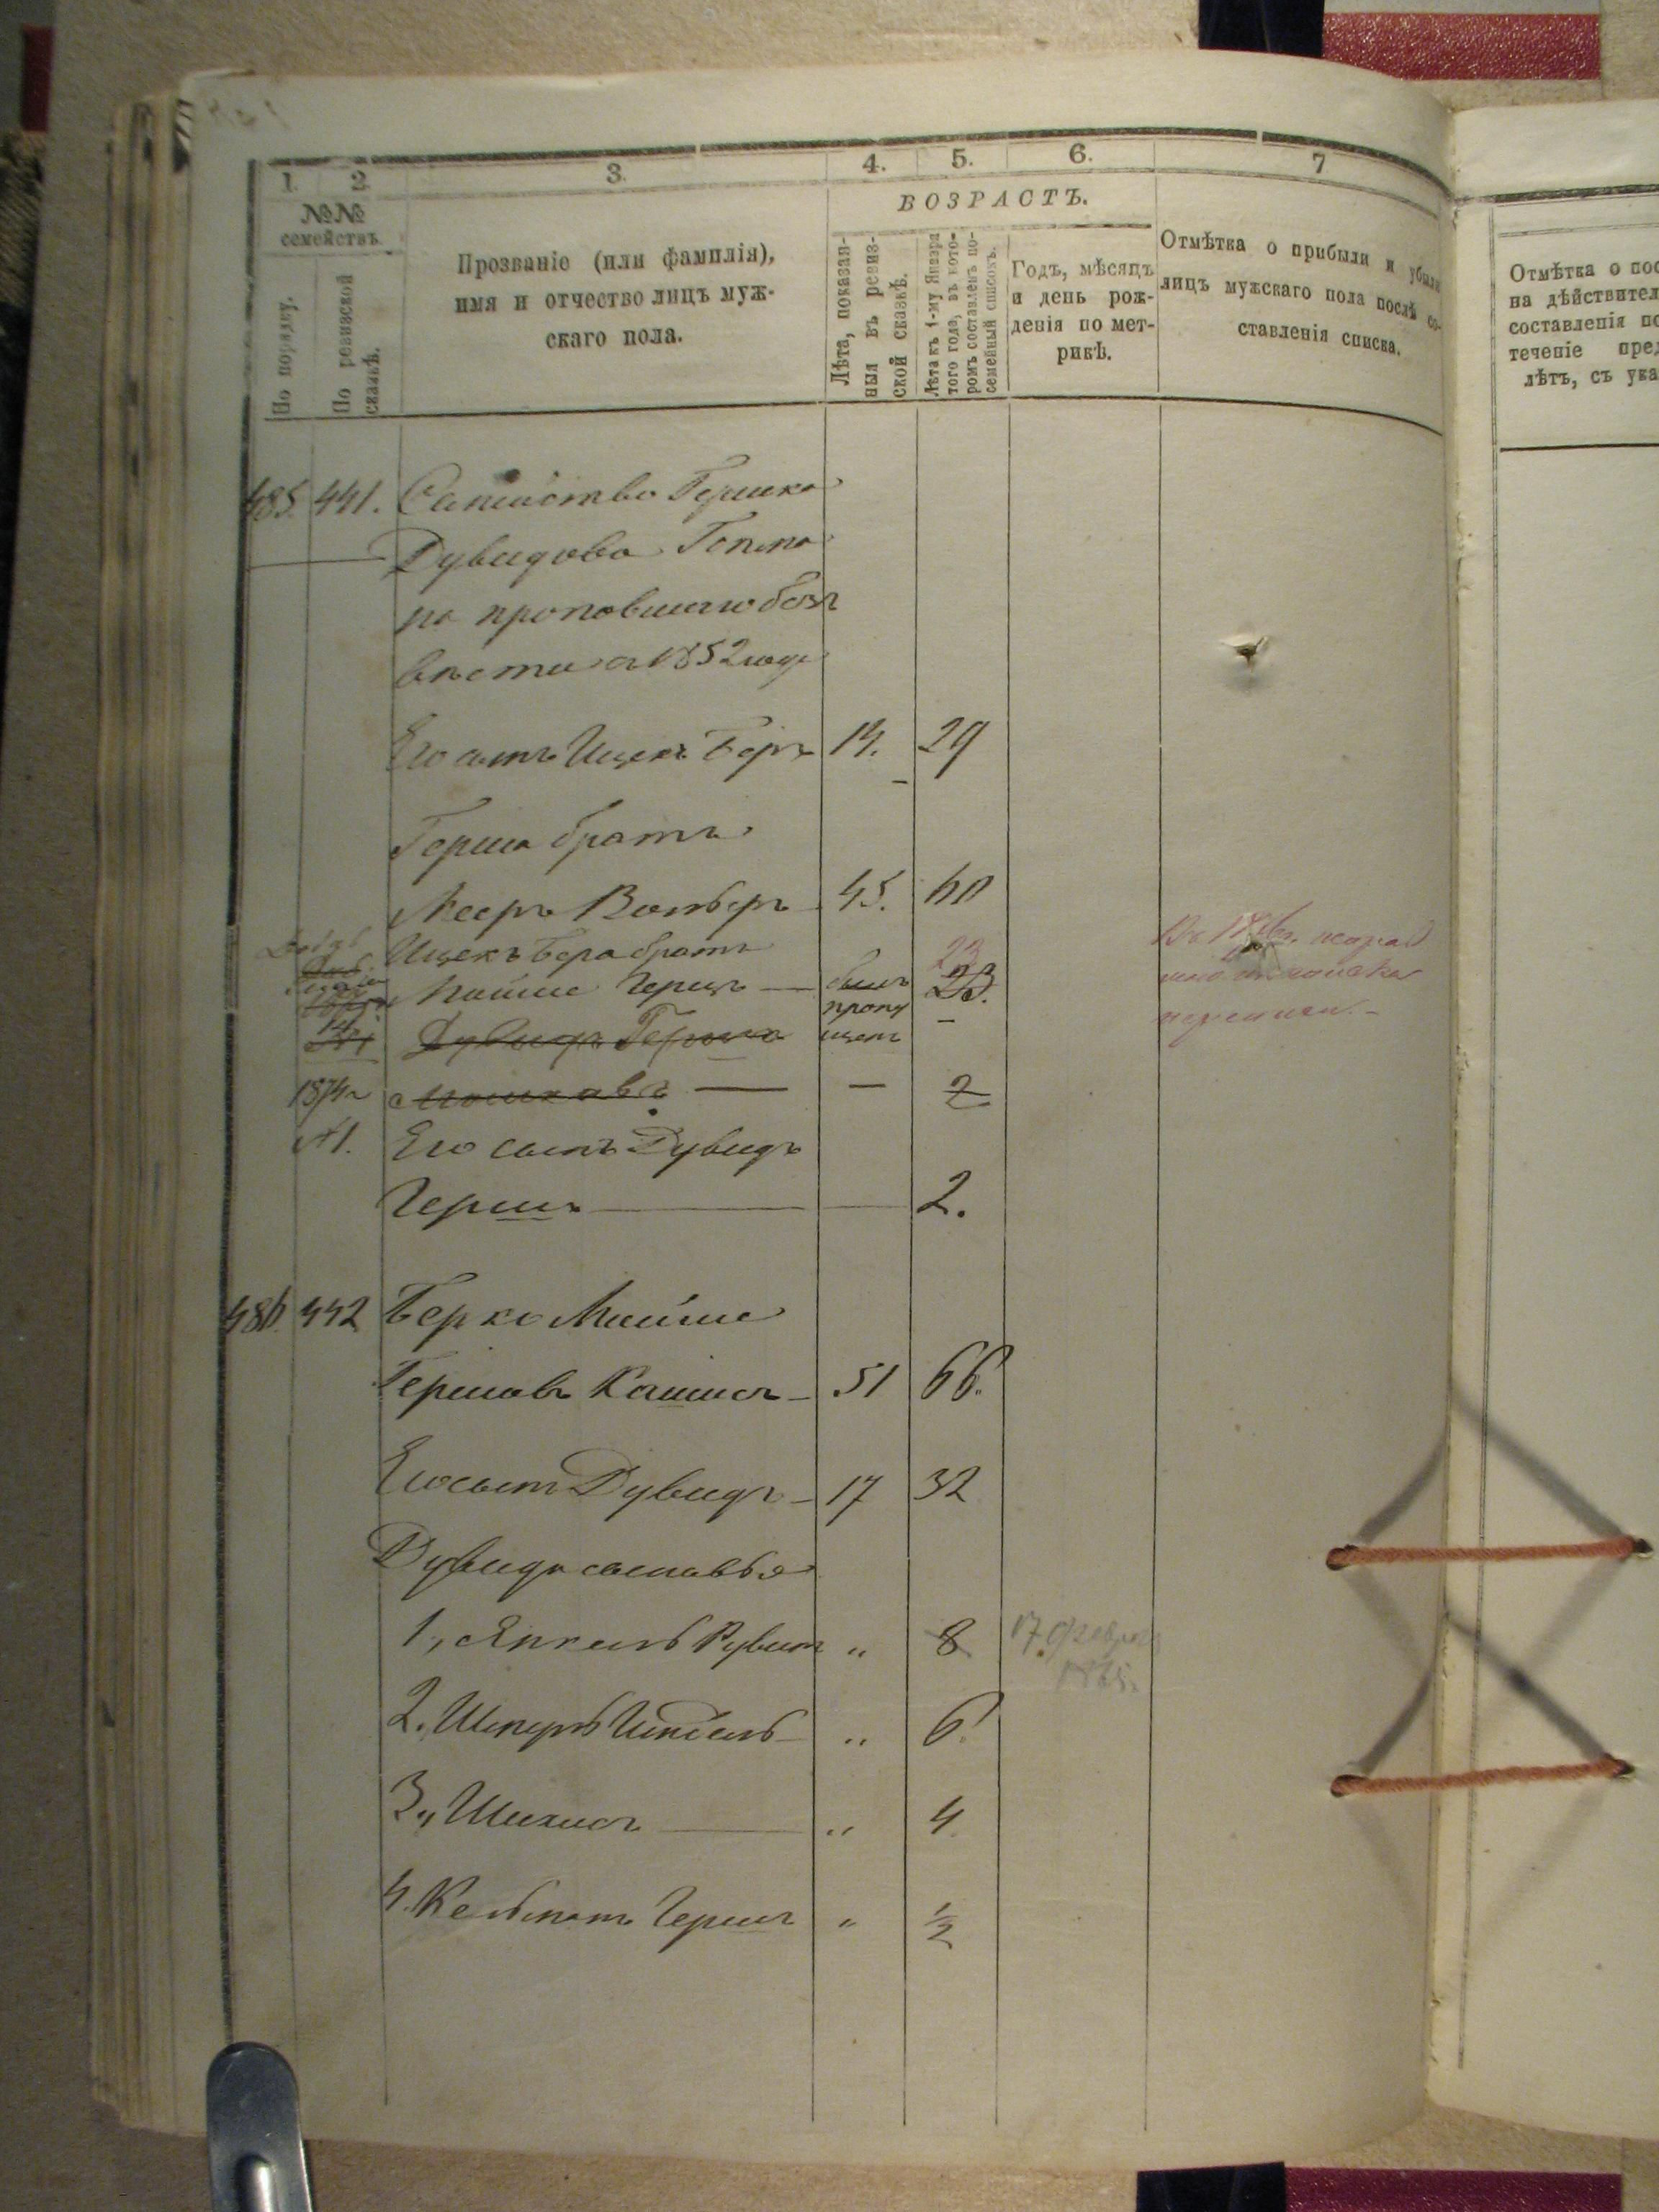 1. 2. 3. 4. 5. 6. 7
№№ семействъ.
По порядку.
По ревизской сказкѣ.
Прозваніе (или фамилія),
имя и отчество лицъ муж-
скаго пола.
ВОЗРАСТЪ.
Лѣта, показан-
ныя въ ревиз-
ской сказкѣ.
Лѣта къ 1-му Января
того года, въ кото-
ромъ составленъ по-
семейный списокъ.
Годъ, мѣсяцъ
и день рож-
денія по мет-
рикѣ.
Отмѣтка о прибыли и убыли
лицъ мужскаго пола послѣ со-
ставленія списка.
Отмѣтка о пос
на дѣйствител
составленія по
теченіе пред
лѣтъ, съ ука
485. 441. Семейство Гершка
Дувидова
пропавшаго безъ
вѣсти въ 1852 году
Его сынъ Ицекъ Беръ 14. 29
Герша братъ
Мееръ Вольфъ 45. 60
Ицекъ Бера братъ 23
Мойше Герш — былъ 23.
пропу
щенъ
Дувидъ Гершко
Мошковъ — — 2
1874
№1. Его сынъ Дувидъ
Гершъ — — 2.
486. 442 Берко Мойше
Гершовъ 51 66.
Его сынъ Дувидъ 17 32
Дувида сыновья
1., Янкель Рувинъ " 8 17 февраля
2. " 6.
3., " 4.
4. Гершъ " ½